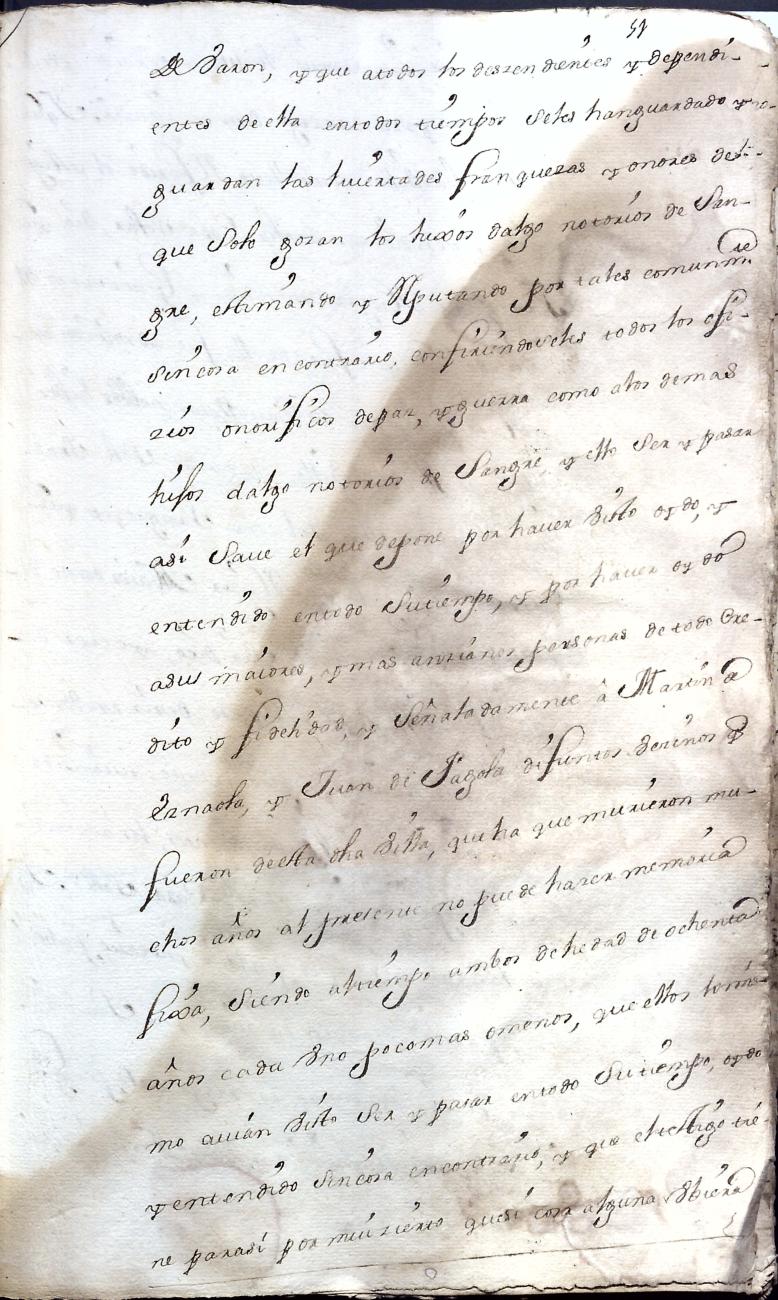 51
de Varon, y que a todos los deszendientes y dependi-
entes de ella en todos tiempos se les han guardado y
guardan las livertades franquezas y onores
que solo gozan los hixos dalgo notorios de San-
gre, estimando y Reputando por tales comunmte
sin cosa en contrario, confiriendoseles todos los ofi-
zios onorificos de paz, y guerra como a los demas
hijos dalgo notorios de Sangre, y ello ser y pasar
asi Save el que depone por haver visto oydo, y
entendido en todo su tiempo, y por haver oydo
a sus maiores, y mas anzianos personas de todo Cre-
dito y fidelidad, y Señaladamente â Martin de
Eznaola, y Juan de Pagola difuntos vezinos q
fueron de esta dha villa, que ha que murieron mu-
chos años al presente no puede hazer memoria
fixa, siendo al tiempo ambos de hedad de ochenta
años cada vno poco mas o menos, que ellos lo mis-
mo avian visto ser y pasar en todo su tiempo, oydo
y entendido sin cosa en contrario, y que el testigo tie-
ne para si por mui zierto que si cosa alguna vbiera